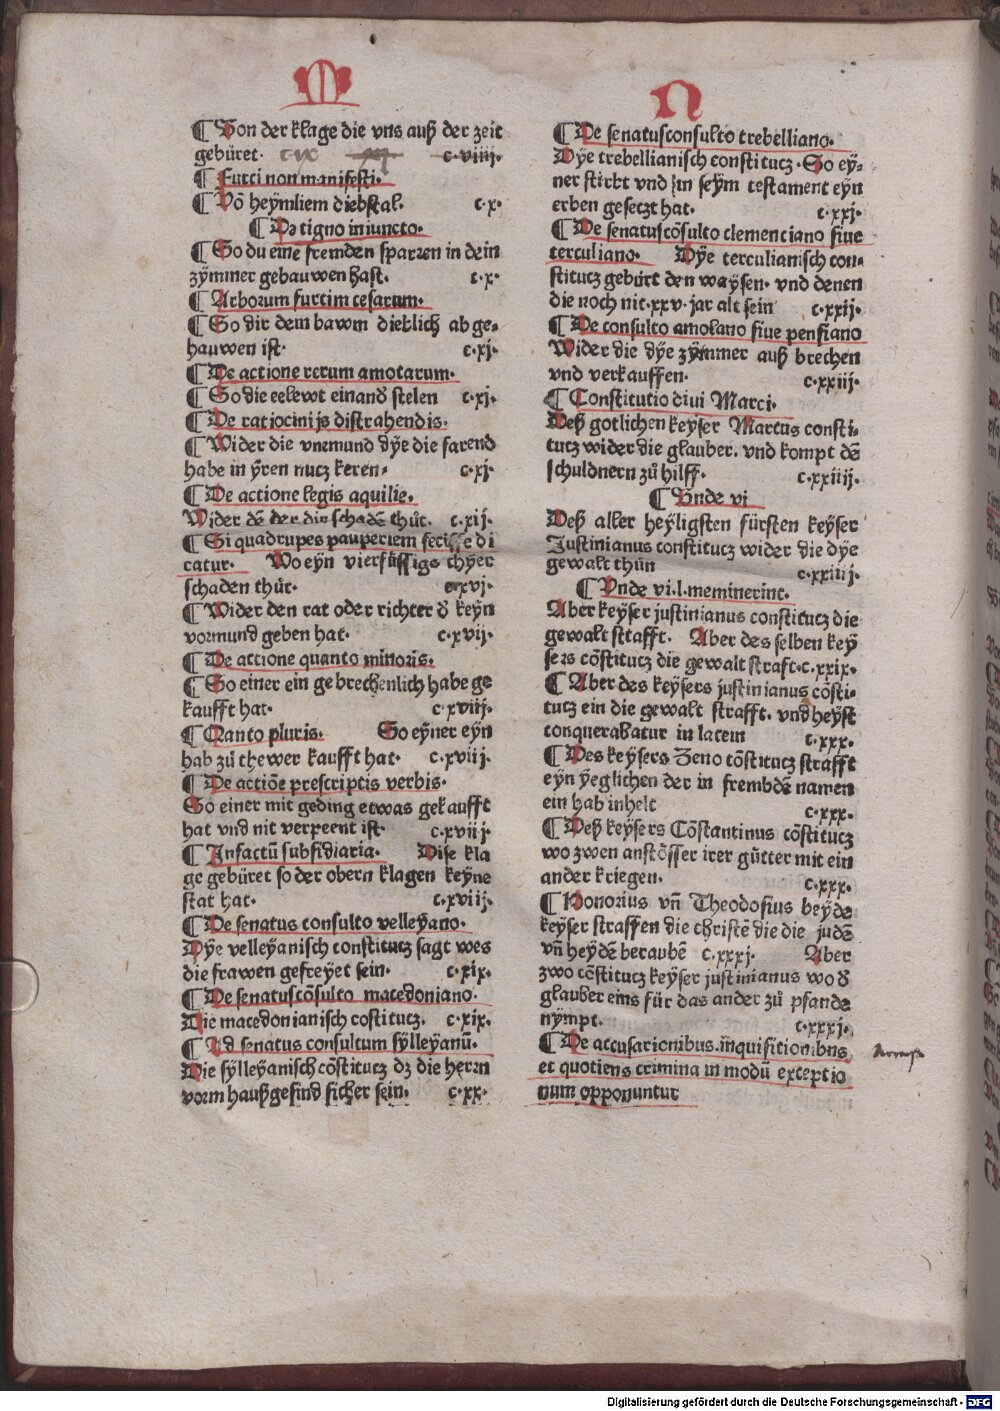 M
¶ Von der klage die vns auß der zeit
gebüret. c ix c.viiij.
¶ Furti non manifesti.
¶ Võ heẏmliem diebstal. c.x.
¶ De tigno iniuncto.
¶ So du eine fremden sparren in dein
zẏmmer gebauwen hast. c.x.
¶ Arborum furtim cesarum.
¶ So dir dein bawm dieblich ab ge⸗
hauwen ist. c.xj.
¶ De actione rerum amotarum.
¶ So die eelewt einand̃ stelen c.xj.
¶ De ratiocinijs distrahendis.
¶ Wider die vnemund dẏe die farend
habe in ẏren nutz keren⸗ c.xj.
¶ De actione legis aquilie.
Wider dẽ der die schadẽ thůt. c.xij.
¶ Si quadrupes pauperiem fecisse di
catur. Wo eẏn vierfüssigs thẏer
schaden thůt. c.xvj.
¶ Wider den rat oder richter d̃ keẏn
vormund geben hat. c.xvij.
¶ De actione quanto minoris.
¶ So einer ein gebrechenlich habe ge
kaufft hat. c.xviij.
¶ Qanto pluris. So eẏner eẏn
hab zů thewer kaufft hat. c.xviij.
¶ De actiõe prescriptis verbis.
So einer mit geding etwas gekaufft
hat vnd nit verpeent ist. c.xviij.
¶ Infactũ subsidiaria. Dise kla
ge gebüret so der obern klagen keẏne
stat hat. c.xviij.
¶ De senatus consulto velleẏano.
Dẏe velleẏanisch constitutz sagt wes
die frawen gefreẏet sein. c.xix.
¶ De senatuscõsulto macedoniano.
Die macedonianisch costitutz. c.xix.
¶ Ad senatus consultum sẏlleẏanũ.
Die sẏlleẏanisch cõstitutz dz die herrn
vorm haußgesind sicher sein. c.xx.
N
¶ De senatusconsulto trebelliano.
Dẏe trebellianisch constitutz. So eẏ⸗
ner stirbt vnd in seẏm testament eẏn
erben gesetzt hat. c.xxj.
¶ De senatuscõsulto clementiano siue
terculiano. Dẏe terculianisch con⸗
stitutz gebürt den waẏsen. vnd denen
die noch nit.xxv.jar alt sein c.xxij.
¶ De consulto amolano siue pensiano
Wider die dẏe zẏmmer auß brechen
vnd verkauffen. c.xxiij.
¶ Constitutio diui Marci.
Deß gotlichen keẏser Marcus consti⸗
tutz wider die glauber. vnd kompt dẽ
schuldnern zů hilff. c.xxiiij.
¶ Vnde vi
Deß aller heẏligsten fürsten keẏser
Justinianus constitutz wider die dẏe
gewalt thůn c.xxiiij.
¶ Vnde vi.l.meminerint.
Aber keẏser justinianus constitutz die
gewalt strafft. Aber des selben keẏ
sers cõstitutz die gewalt straft.c.xxix.
¶ Aber des keẏsers justinianus cõsti⸗
tutz ein die gewalt strafft. vnd heẏst
conquerabatur in latein c.xxx.
¶ Des keẏsers Zeno cõstitutz strafft
eẏn ẏeglichen der in frembdẽ namen
ein hab inhelt c.xxx.
¶ Deß keẏsers Cõstantinus cõstitutz
wo zwen anstösser irer gůtter mit ein
ander kriegen. c.xxx.
¶ Honorius vñ Theodosius beẏde
keẏser straffen die christẽ die die judẽ
vñ heẏdẽ beraubẽ c.xxxj. Aber
zwo cõstitutz keẏser justinianus wo d̃
glauber eins für das ander zů pfande
nẏmpt. c.xxxj.
¶ De accusationibus.inquisitionibus
et quotiens crimina in modũ exceptio
num opponuntur
Digitalisierung gefördert durch die Deutsche Forschungsgemeinschaft - DFG